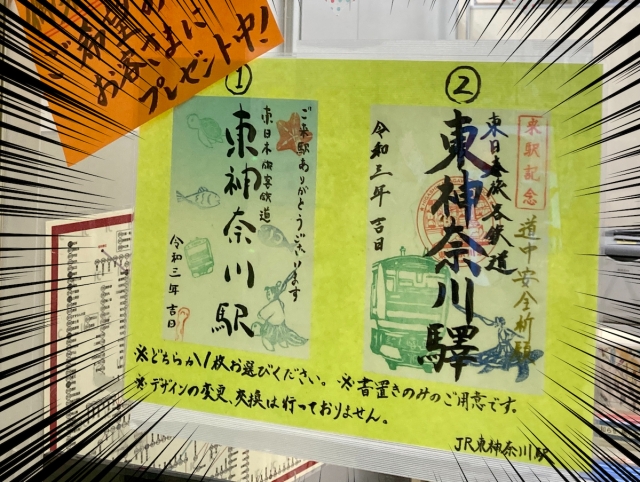 ご希望の
お客さまに
プレゼント中!
①
ご来駅ありがとうございます
東日本旅客鉄道
東神奈川駅
令和三年 吉日
②
来駅記念
道中安全祈願
東日本旅客鉄道
東神奈川驛
令和三年 吉日
※どちらか1枚お選びください。 ※書置きのみのご用意です。
※デザインの変更、交換は行っておりません。
JR東神奈川駅